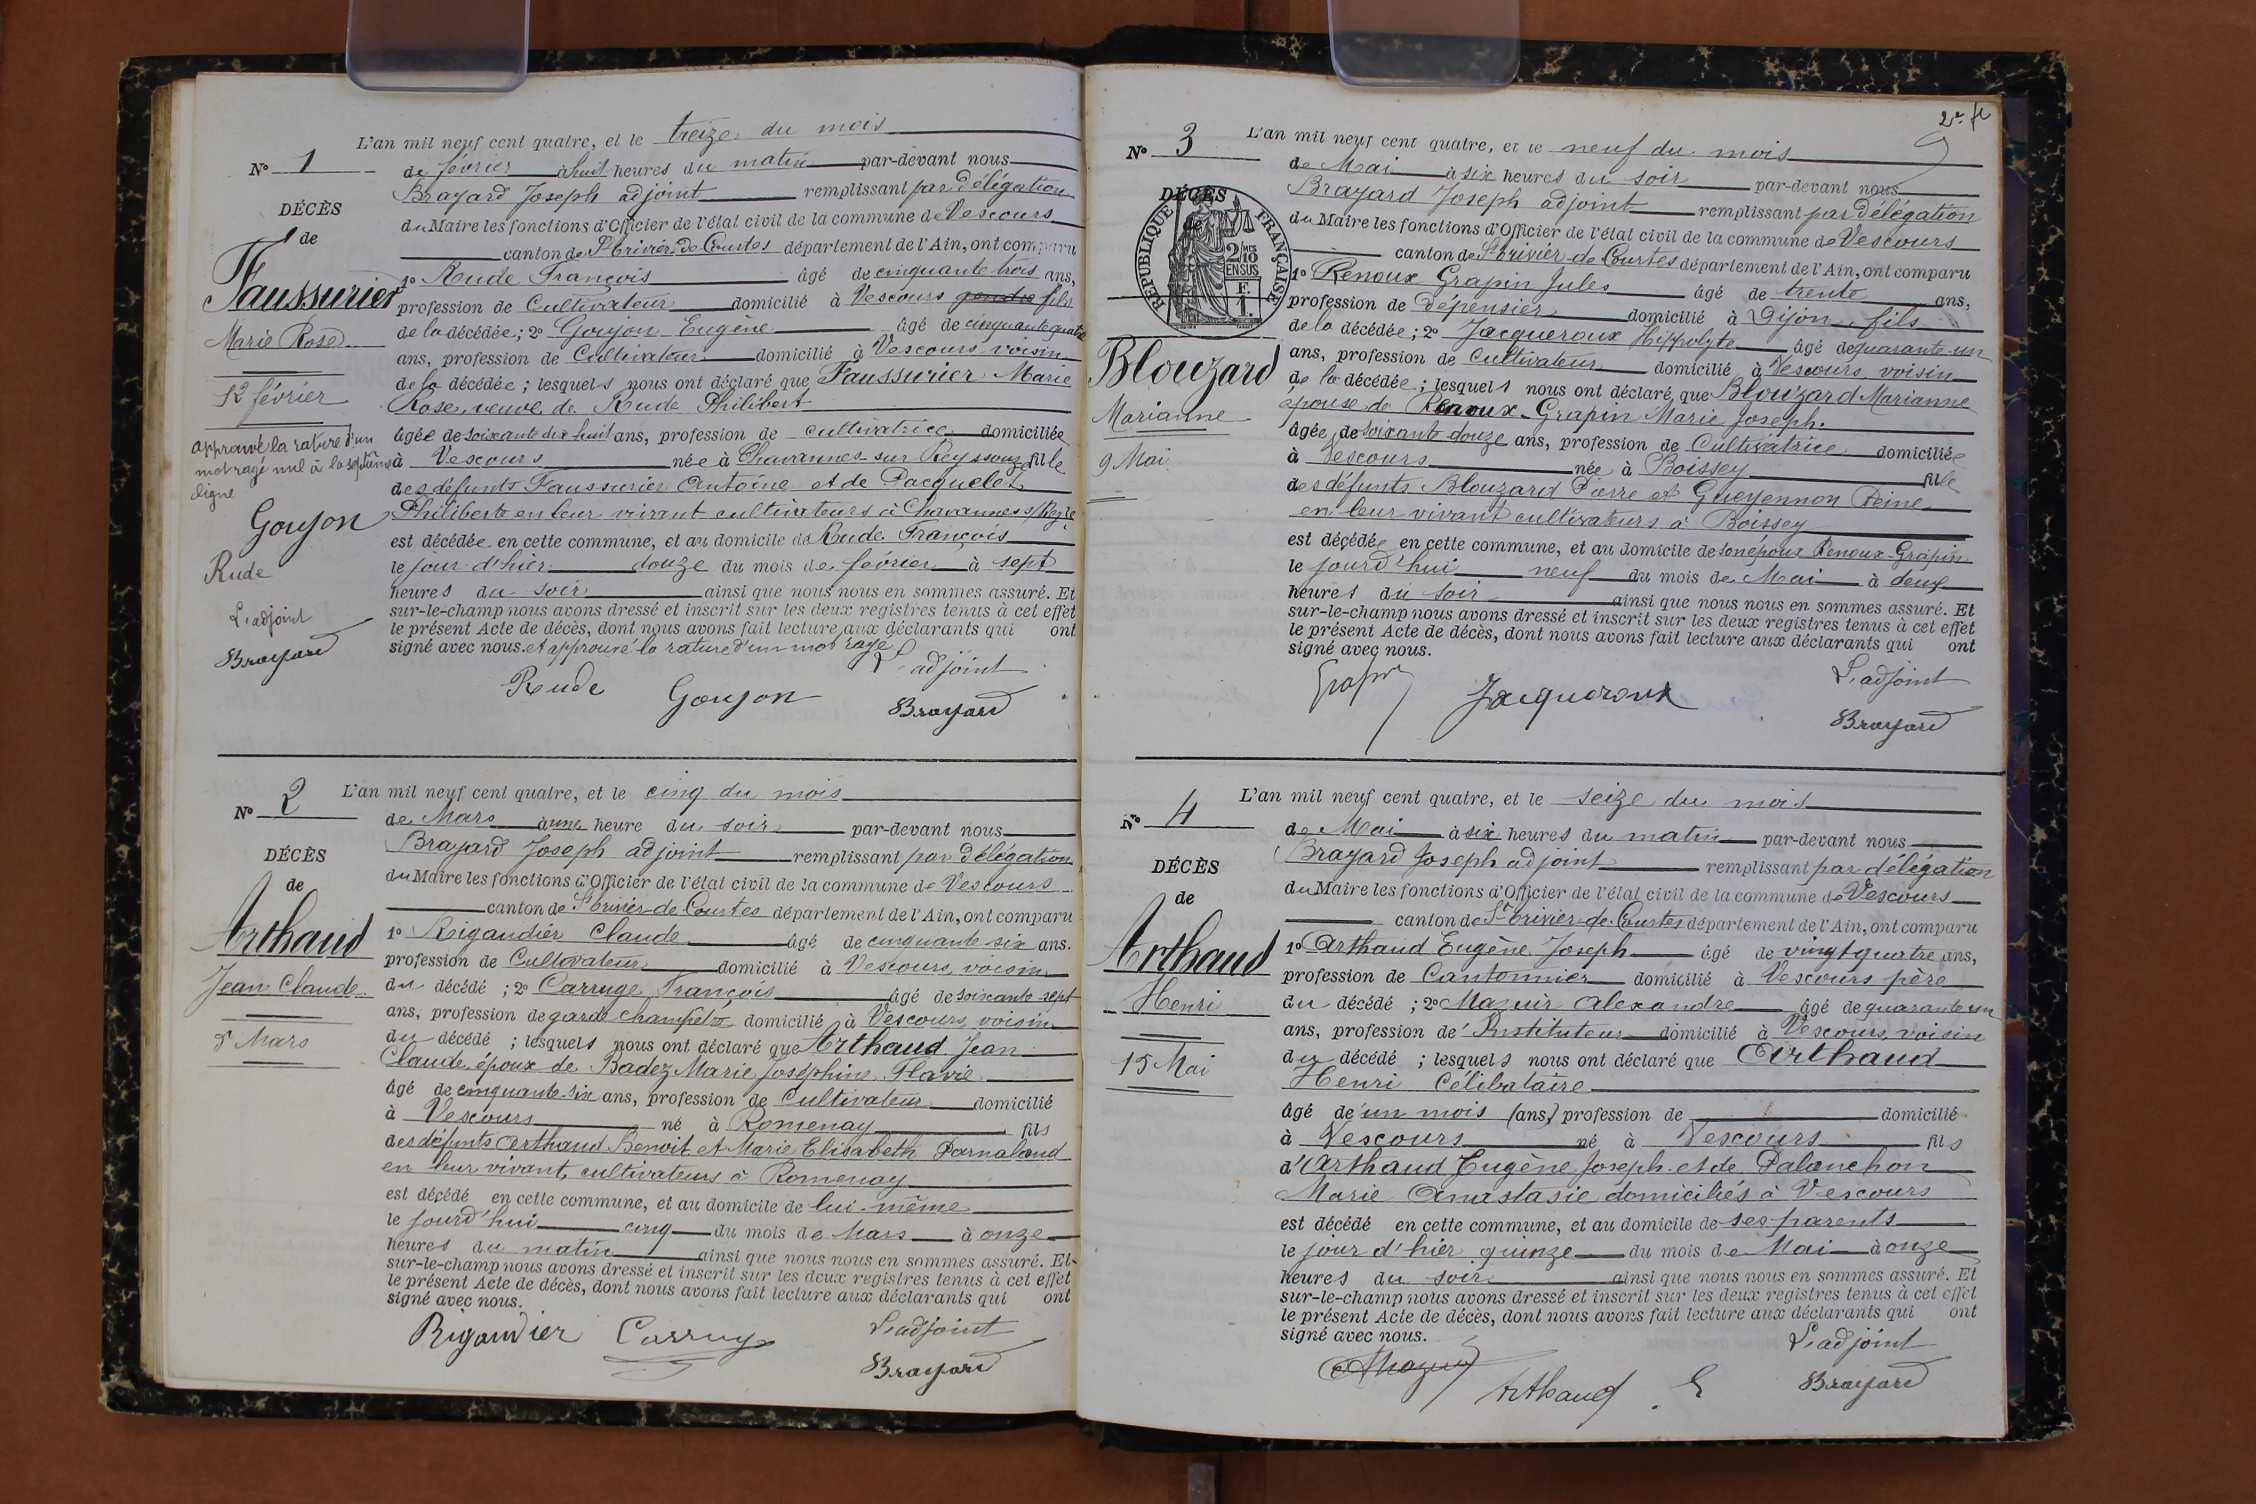 L'an mil neuf cent quatre, et le treize du mois
N° 1
de février à huit heures du matin par-devant nous
Brayard Joseph adjoint remplissant par délégation
DÉCÈS
du Maire les fonctions d'Officier de l'état civil de la commune de Vescours
de
canton de St Trivier de Courtes département de l'Ain, ont comparu
Faussurier
1° Rude François âgé de cinquante trois ans,
profession de Cultivateur domicilié à Vescours gendre fils
Marie Rose
de la décédée ; 2° Goujon Eugène âgé de cinquante quatre
ans, profession de Cultivateur domicilié à Vescours voisin
12 février
de la décédée ; lesquels nous ont déclaré que Faussurier Marie
Rose, veuve de Rude Philibert
approuvé la rature d'un
mot rayé nul à la septième
ligne
âgée de soixante dix huit ans, profession de cultivatrice domiciliée
à Vescours née à Chavannes sur Reyssouze fille
des défunts Faussurier Antoine et de Pacquelet
Philiberte en leur vivant cultivateurs à Chavannes s/Reyze
Goujon
est décédée en cette commune, et au domicile de Rude François
Rude
le jour d'hier douze du mois de février à sept
heures du soir ainsi que nous nous en sommes assuré. Et
L'adjoint
sur-le-champ nous avons dressé et inscrit sur les deux registres tenus à cet effet
le présent Acte de décès, dont nous avons fait lecture aux déclarants qui ont
Brayard
signé avec nous. et approuvé la rature d'un mot rayé
L'adjoint
Rude Goujon Brayard
L'an mil neuf cent quatre, et le cinq du mois
N° 2
de Mars à une heure du soir par-devant nous
Brayard Joseph adjoint remplissant par délégation
DÉCÈS
du Maire les fonctions d'Officier de l'état civil de la commune de Vescours
de
canton de St Trivier de Courtes département de l'Ain, ont comparu
Arthaud
1° Rigaudier Claude âgé de cinquante six ans.
profession de Cultivateur domicilié à Vescours, voisin
Jean Claude
du décédé ; 2° Carruge François âgé de soixante sept
ans, profession de garde champêtre domicilié à Vescours, voisin
5 Mars
du décédé ; lesquels nous ont déclaré que Arthaud Jean
Claude, époux de Badez Marie Joséphine Flavie
âgé de cinquante-six ans, profession de Cultivateur domicilié
à Vescours né à Romenay fils
des défunts Arthaud Benoit et Marie Elisabeth Darnaland
en leur vivant, cultivateurs à Romenay
est décédé en cette commune, et au domicile de lui-même
le jourd'hui cinq du mois de Mars à onze
heures du matin ainsi que nous nous en sommes assuré. Et
sur-le-champ nous avons dressé et inscrit sur les deux registres tenus à cet effet
le présent Acte de décès, dont nous avons fait lecture aux déclarants qui ont
signé avec nous.
L'adjoint
Rigaudier Carruge Brayard
2e f.
L'an mil neuf cent quatre, et le neuf du mois
N° 3
de Mai à six heures du soir par-devant nous
Brayard Joseph adjoint remplissant par délégation
DÉCÈS
de
RÉPUBLIQUE FRANÇAISE
2/10 MES EN SUS
F. 1.
du Maire les fonctions d'Officier de l'état civil de la commune de Vescours
canton de St Trivier de Courtes département de l'Ain, ont comparu
1° Renoux Grapin Jules âgé de trente ans,
profession de dépensier domicilié à Dijon fils
de la décédée ; 2° Jacqueroux Hippolyte âgé de quarante-un
Blouzard
ans, profession de Cultivateur domicilié à Vescours, voisin
de la décédée ; lesquels nous ont déclaré que Blouzard Marianne
Marianne
épouse de Renoux-Grapin Marie Joseph.
âgée de soixante douze ans, profession de Cultivatrice domiciliée
9 Mai
à Vescours née à Boissey fille
des défunts Blouzard Pierre et Gueyennon Reine
en leur vivant cultivateurs à Boissey
est décédée en cette commune, et au domicile de son époux Renoux-Grapin
le jourd'hui neuf du mois de Mai à deux
heures du soir ainsi que nous nous en sommes assuré. Et
sur-le-champ nous avons dressé et inscrit sur les deux registres tenus à cet effet
le présent Acte de décès, dont nous avons fait lecture aux déclarants qui ont
signé avec nous.
L'adjoint
Grapin Jacqueroux Brayard
L'an mil neuf cent quatre, et le seize du mois
N° 4
de Mai à six heures du matin par-devant nous
Brayard Joseph adjoint remplissant par délégation
DÉCÈS
du Maire les fonctions d'Officier de l'état civil de la commune de Vescours
de
canton de St Trivier de Courtes département de l'Ain, ont comparu
Arthaud
1° Arthaud Eugène Joseph âgé de vingt quatre ans,
profession de Cantonnier domicilié à Vescours père
Henri
du décédé ; 2° Mazuir Alexandre âgé de quarante un
ans, profession de Instituteur domicilié à Vescours, voisin
15 Mai
du décédé ; lesquels nous ont déclaré que Arthaud
Henri Célibataire
âgé de un mois (ans,) profession de domicilié
à Vescours né à Vescours fils
d'Arthaud Eugène Joseph et de Palanchon
Marie Anastasie domiciliés à Vescours
est décédé en cette commune, et au domicile de ses parents
le jour d'hier quinze du mois de Mai à onze
heures du soir ainsi que nous nous en sommes assuré. Et
sur-le-champ nous avons dressé et inscrit sur les deux registres tenus à cet effet
le présent Acte de décès, dont nous avons fait lecture aux déclarants qui ont
signé avec nous.
L'adjoint
AMazuir Arthaud E Brayard